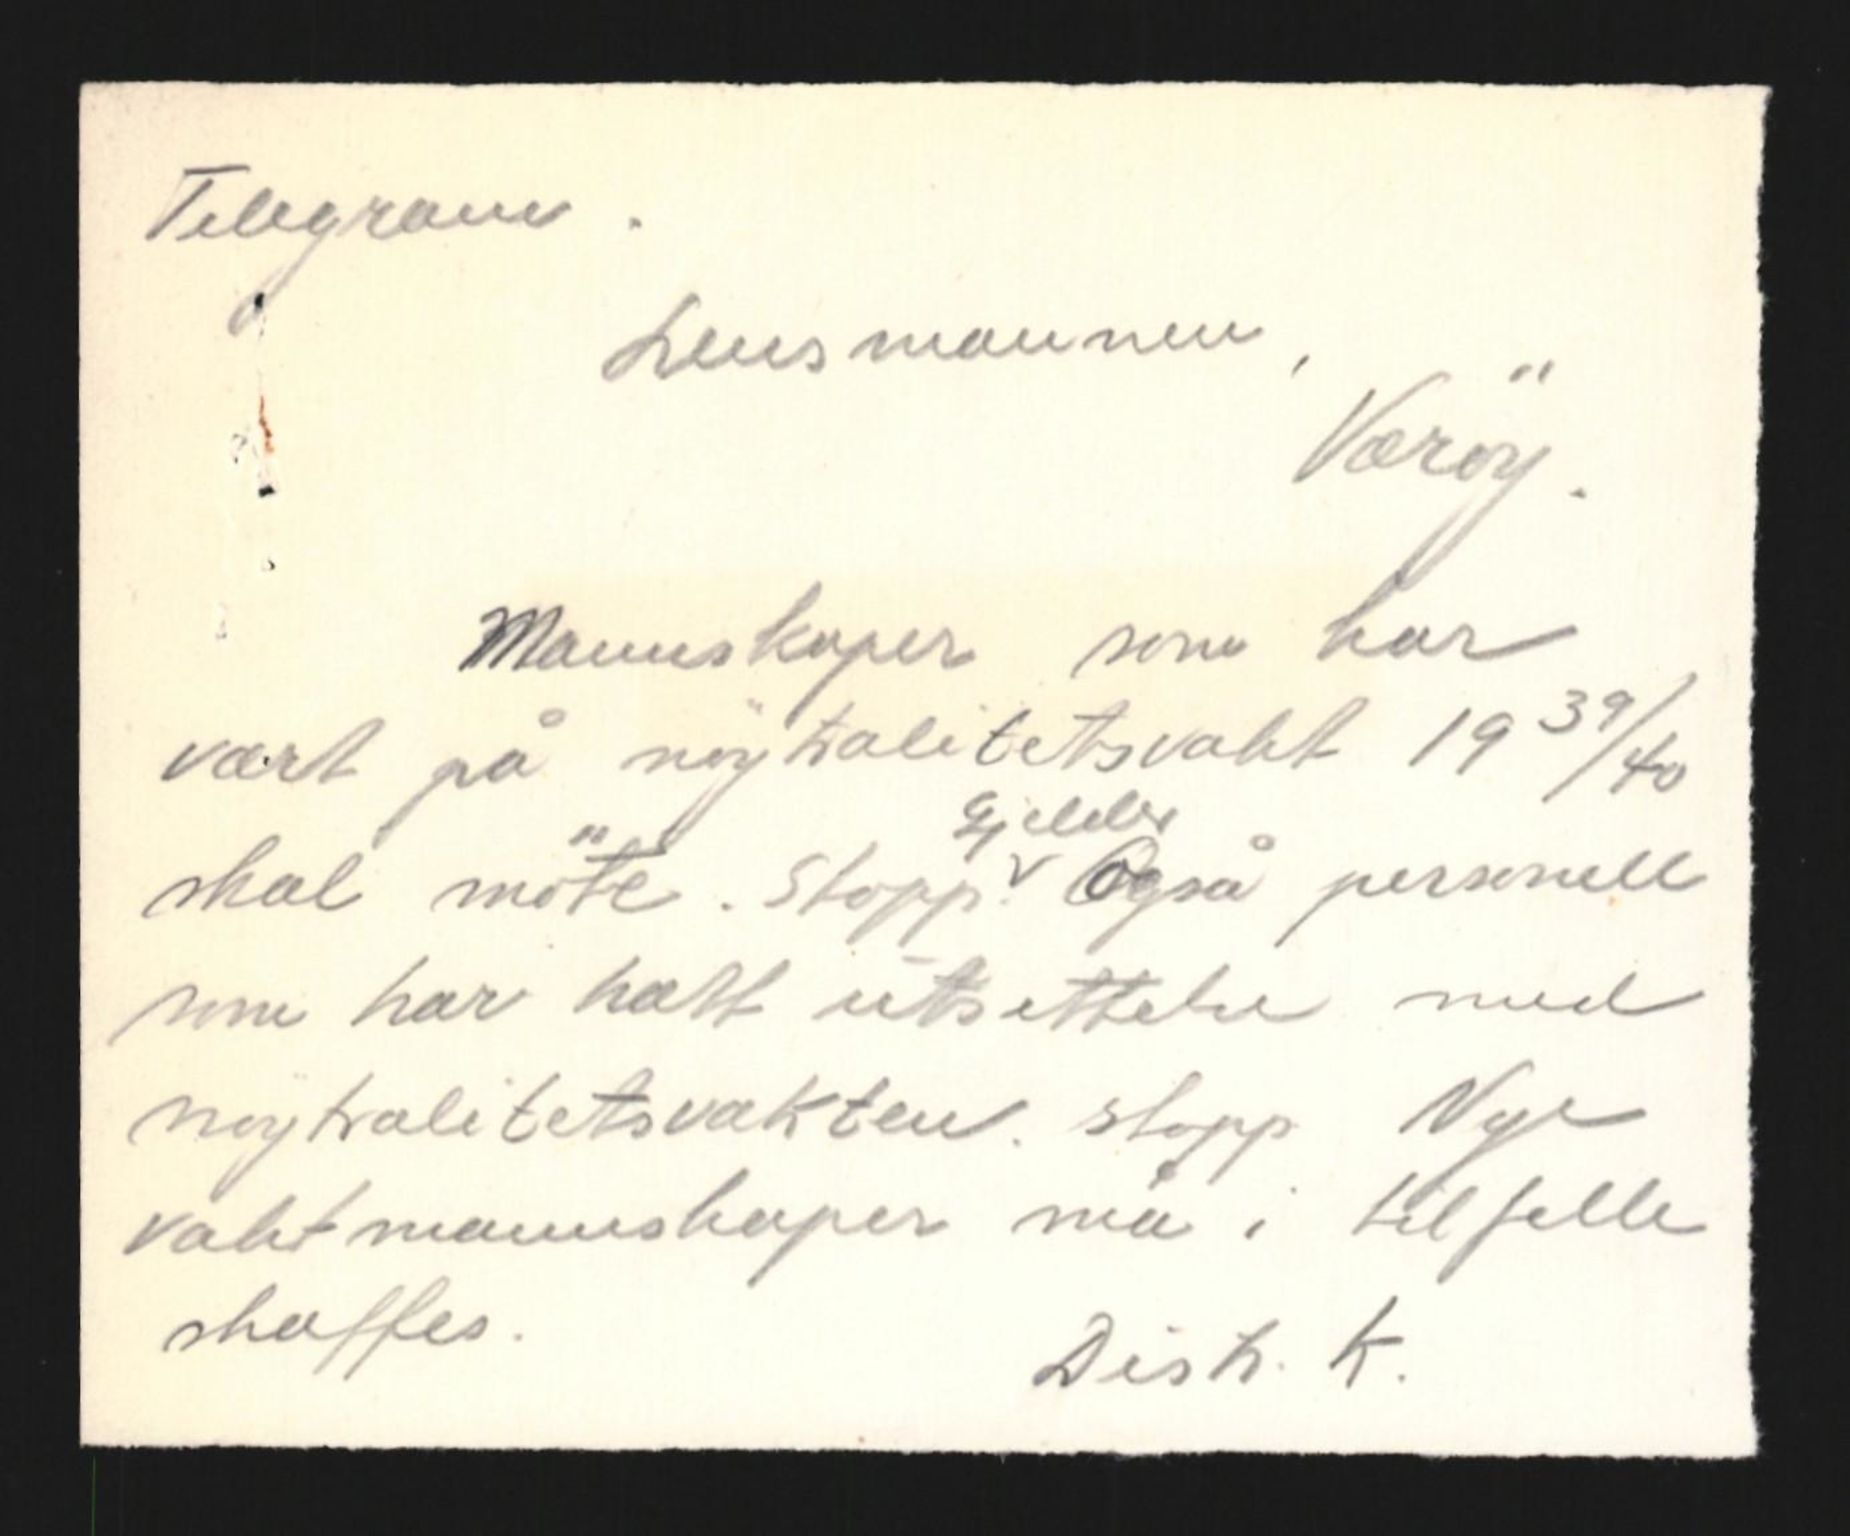 Telegram.
Lensmannen,
Væröy.
Mannskaper som har
vært på nöytralitetsvakt 19 39/40
skal möte. Stopp. Gjelder Også personell
som har hatt utsettelse med
nöytralitetsvakten. Stopp Nye
vaktmannskaper må i tilfelle
skaffes.
Distr. K.